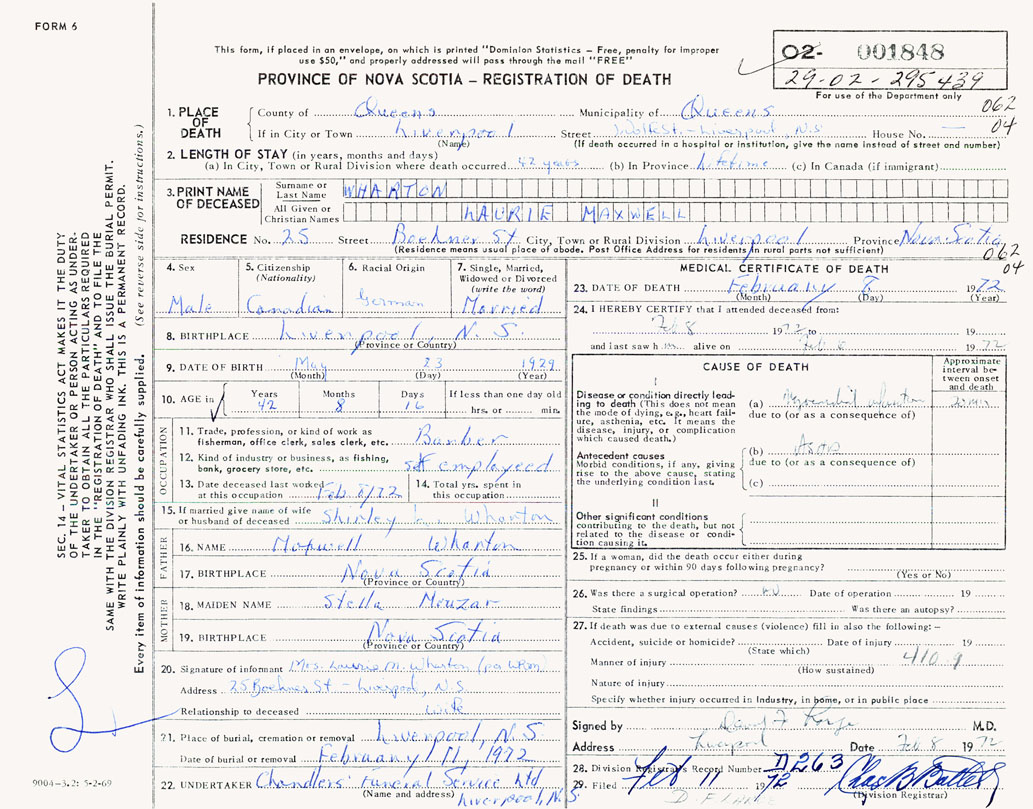 FORM 6
This form, if placed in an envelope, on which is printed "Dominion Statistics – Free, penalty for improper
use $50," and properly addressed will pass through the mail "FREE"
PROVINCE OF NOVA SCOTIA – REGISTRATION OF DEATH
02- 001848
29-02-295439
For use of the Department only
062
04
1. PLACE OF DEATH
County of Queens Municipality of Queens
If in City or Town Liverpool Street Liverpool, N.S. House No. —
(Name) (If death occurred in a hospital or institution, give the name instead of street and number)
2. LENGTH OF STAY (in years, months and days)
(a) In City, Town or Rural Division where death occurred 42 years (b) In Province lifetime (c) In Canada (if immigrant)
3. PRINT NAME OF DECEASED
Surname or Last Name WHARTON
All Given or Christian Names LAURIE MAXWELL
RESIDENCE No. 25 Street Boehner St. City, Town or Rural Division Liverpool Province Nova Scotia
(Residence means usual place of abode. Post Office Address for residents in rural parts not sufficient)
062
04
4. Sex
Male
5. Citizenship (Nationality)
Canadian
6. Racial Origin
German
7. Single, Married, Widowed or Divorced (write the word)
Married
8. BIRTHPLACE Liverpool, N.S.
(Province or Country)
9. DATE OF BIRTH May 23 1929
(Month) (Day) (Year)
10. AGE in
Years Months Days If less than one day old
42 8 16 hrs. or min.
OCCUPATION
11. Trade, profession, or kind of work as
fisherman, office clerk, sales clerk, etc. Barber
12. Kind of industry or business, as fishing,
bank, grocery store, etc. self employed
13. Date deceased last worked
at this occupation Feb. 8/72
14. Total yrs. spent in
this occupation
15. If married give name of wife
or husband of deceased Shirley L. Wharton
FATHER
16. NAME Maxwell Wharton
17. BIRTHPLACE Nova Scotia
(Province or Country)
MOTHER
18. MAIDEN NAME Stella Mouzar
19. BIRTHPLACE Nova Scotia
(Province or Country)
20. Signature of informant Mrs. Laurie M. Wharton
Address 25 Boehner St – Liverpool, N.S.
Relationship to deceased wife
21. Place of burial, cremation or removal Liverpool, N.S.
Date of burial or removal February 11, 1972
22. UNDERTAKER Chandlers' Funeral Service Ltd
(Name and address) Liverpool, N.S.
MEDICAL CERTIFICATE OF DEATH
23. DATE OF DEATH February 8 1972
(Month) (Day) (Year)
24. I HEREBY CERTIFY that I attended deceased from:
Feb 8 1972 to 19
and last saw h im alive on Feb 8 1972
CAUSE OF DEATH
Approximate interval between onset and death
I
Disease or condition directly leading to death (This does not mean
the mode of dying, e.g., heart failure, asthenia, etc. It means the
disease, injury, or complication
which caused death.)
(a) Myocardial infarction
due to (or as a consequence of)
Antecedent causes
Morbid conditions, if any, giving
rise to the above cause, stating
the underlying condition last.
(b) ASHD
due to (or as a consequence of)
(c)
II
Other significant conditions
contributing to the death, but not
related to the disease or condition causing it.
25. If a woman, did the death occur either during
pregnancy or within 90 days following pregnancy?
(Yes or No)
26. Was there a surgical operation? Date of operation 19
State findings Was there an autopsy?
27. If death was due to external causes (violence) fill in also the following:–
Accident, suicide or homicide? Date of injury 19
(State which)
Manner of injury 410.9
(How sustained)
Nature of injury
Specify whether injury occurred in Industry, in home, or in public place
Signed by M.D.
Address Liverpool Date Feb 8 1972
28. Division Registrar's Record Number D263
29. Filed Feb 11 1972
(Division Registrar)
SEC. 14 – VITAL STATISTICS ACT MAKES IT THE DUTY
OF THE UNDERTAKER OR PERSON ACTING AS UNDERTAKER TO OBTAIN ALL THE PARTICULARS REQUIRED
IN THE "REGISTRATION OF DEATH" AND TO FILE THE
SAME WITH THE DIVISION REGISTRAR WHO SHALL ISSUE THE BURIAL PERMIT.
WRITE PLAINLY WITH UNFADING INK. THIS IS A PERMANENT RECORD.
Every item of information should be carefully supplied. (See reverse side for instructions.)
9004-3.2: 5-2-69